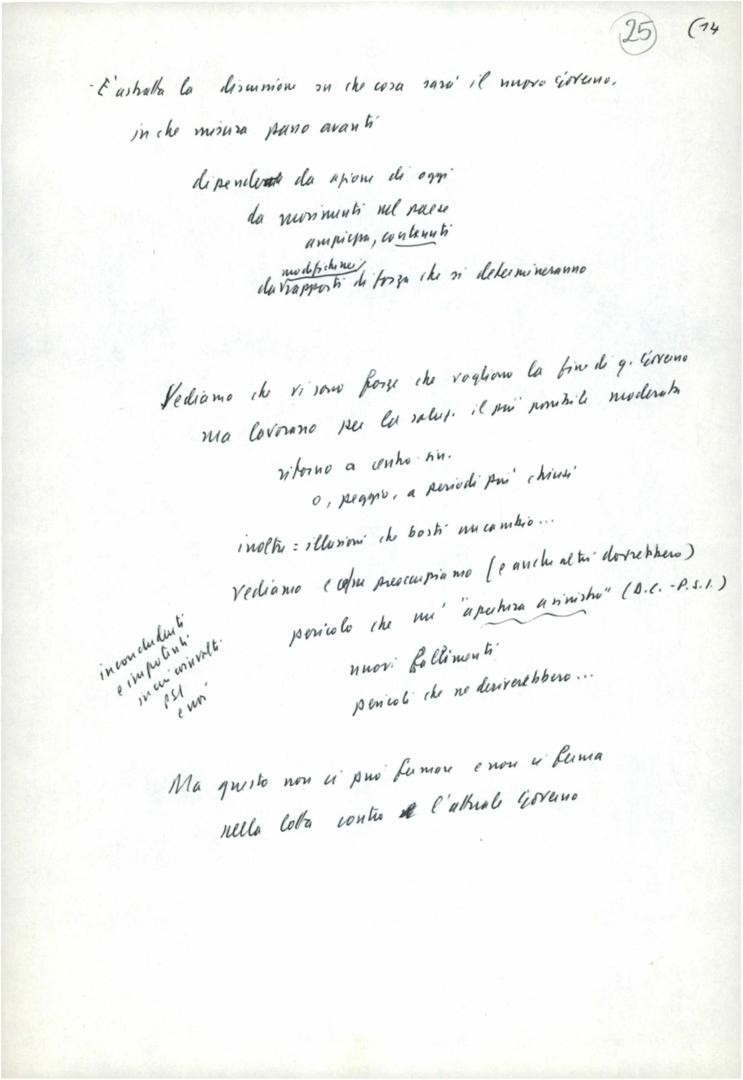 25 (14
- E' astratta la discussione su che cosa sarà il nuovo Governo.
in che misura passo avanti
dipende da azione di oggi
da movimenti nel paese
ampiezza, contenuti
modifiche
da rapporti di forza che si determineranno
Vediamo che vi sono forze che vogliono la fine di q. Governo
ma lavorano per la soluz. il più possibile moderata
ritorno a centro-sin.
o, peggio, a periodi più chiusi
inoltre = illusioni che basti un cambio...
Vediamo e ci preoccupiamo (e anche altri dovrebbero)
pericolo che un' "apertura a sinistra" (D.C. - P.S.I.)
inconcludenti
e impotenti
in cui coinvolti
PSI
e noi
nuovi fallimenti
pericoli che ne deriverebbero...
Ma questo non ci può fermare e non ci ferma
nella lotta contro l'attuale Governo